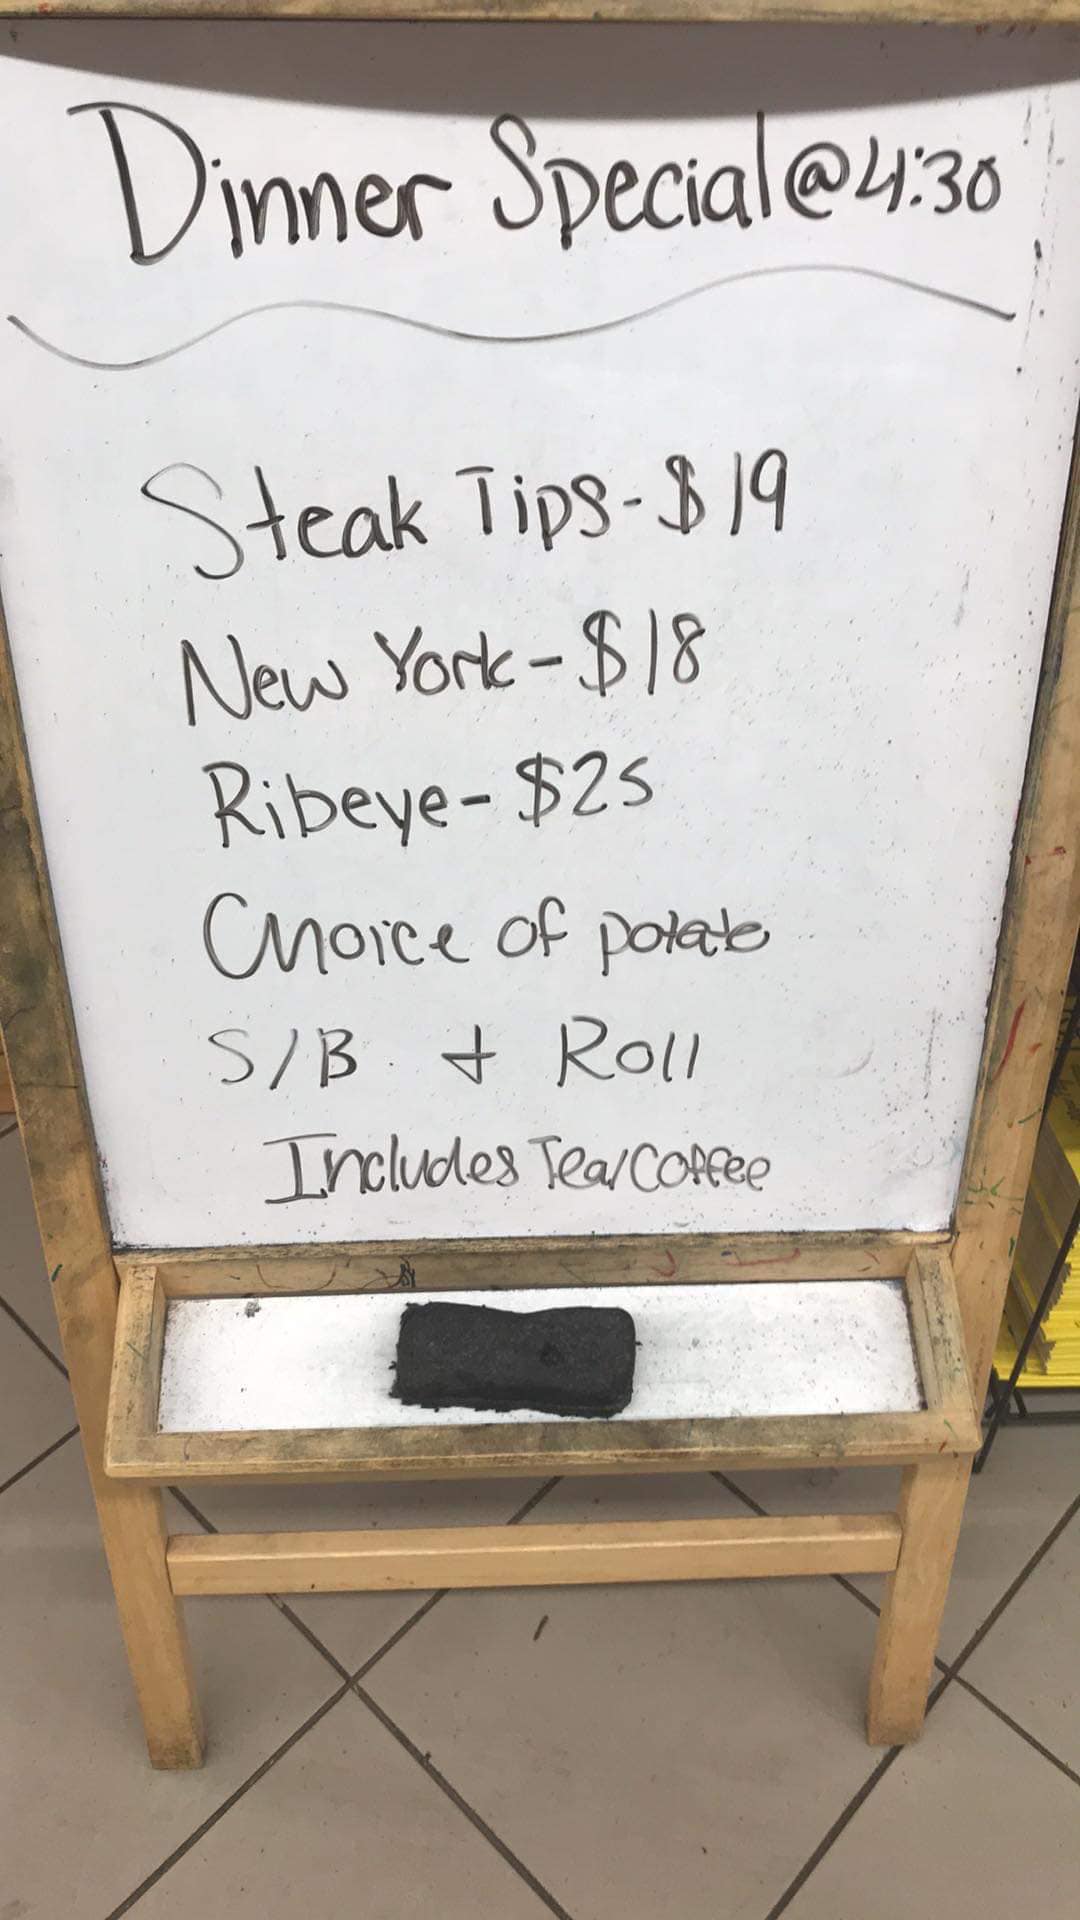 Dinner Special @ 4:30
Steak Tips - $19
New York - $18
Ribeye - $25
Choice of potato
S/B + Roll
Includes Tea/Coffee